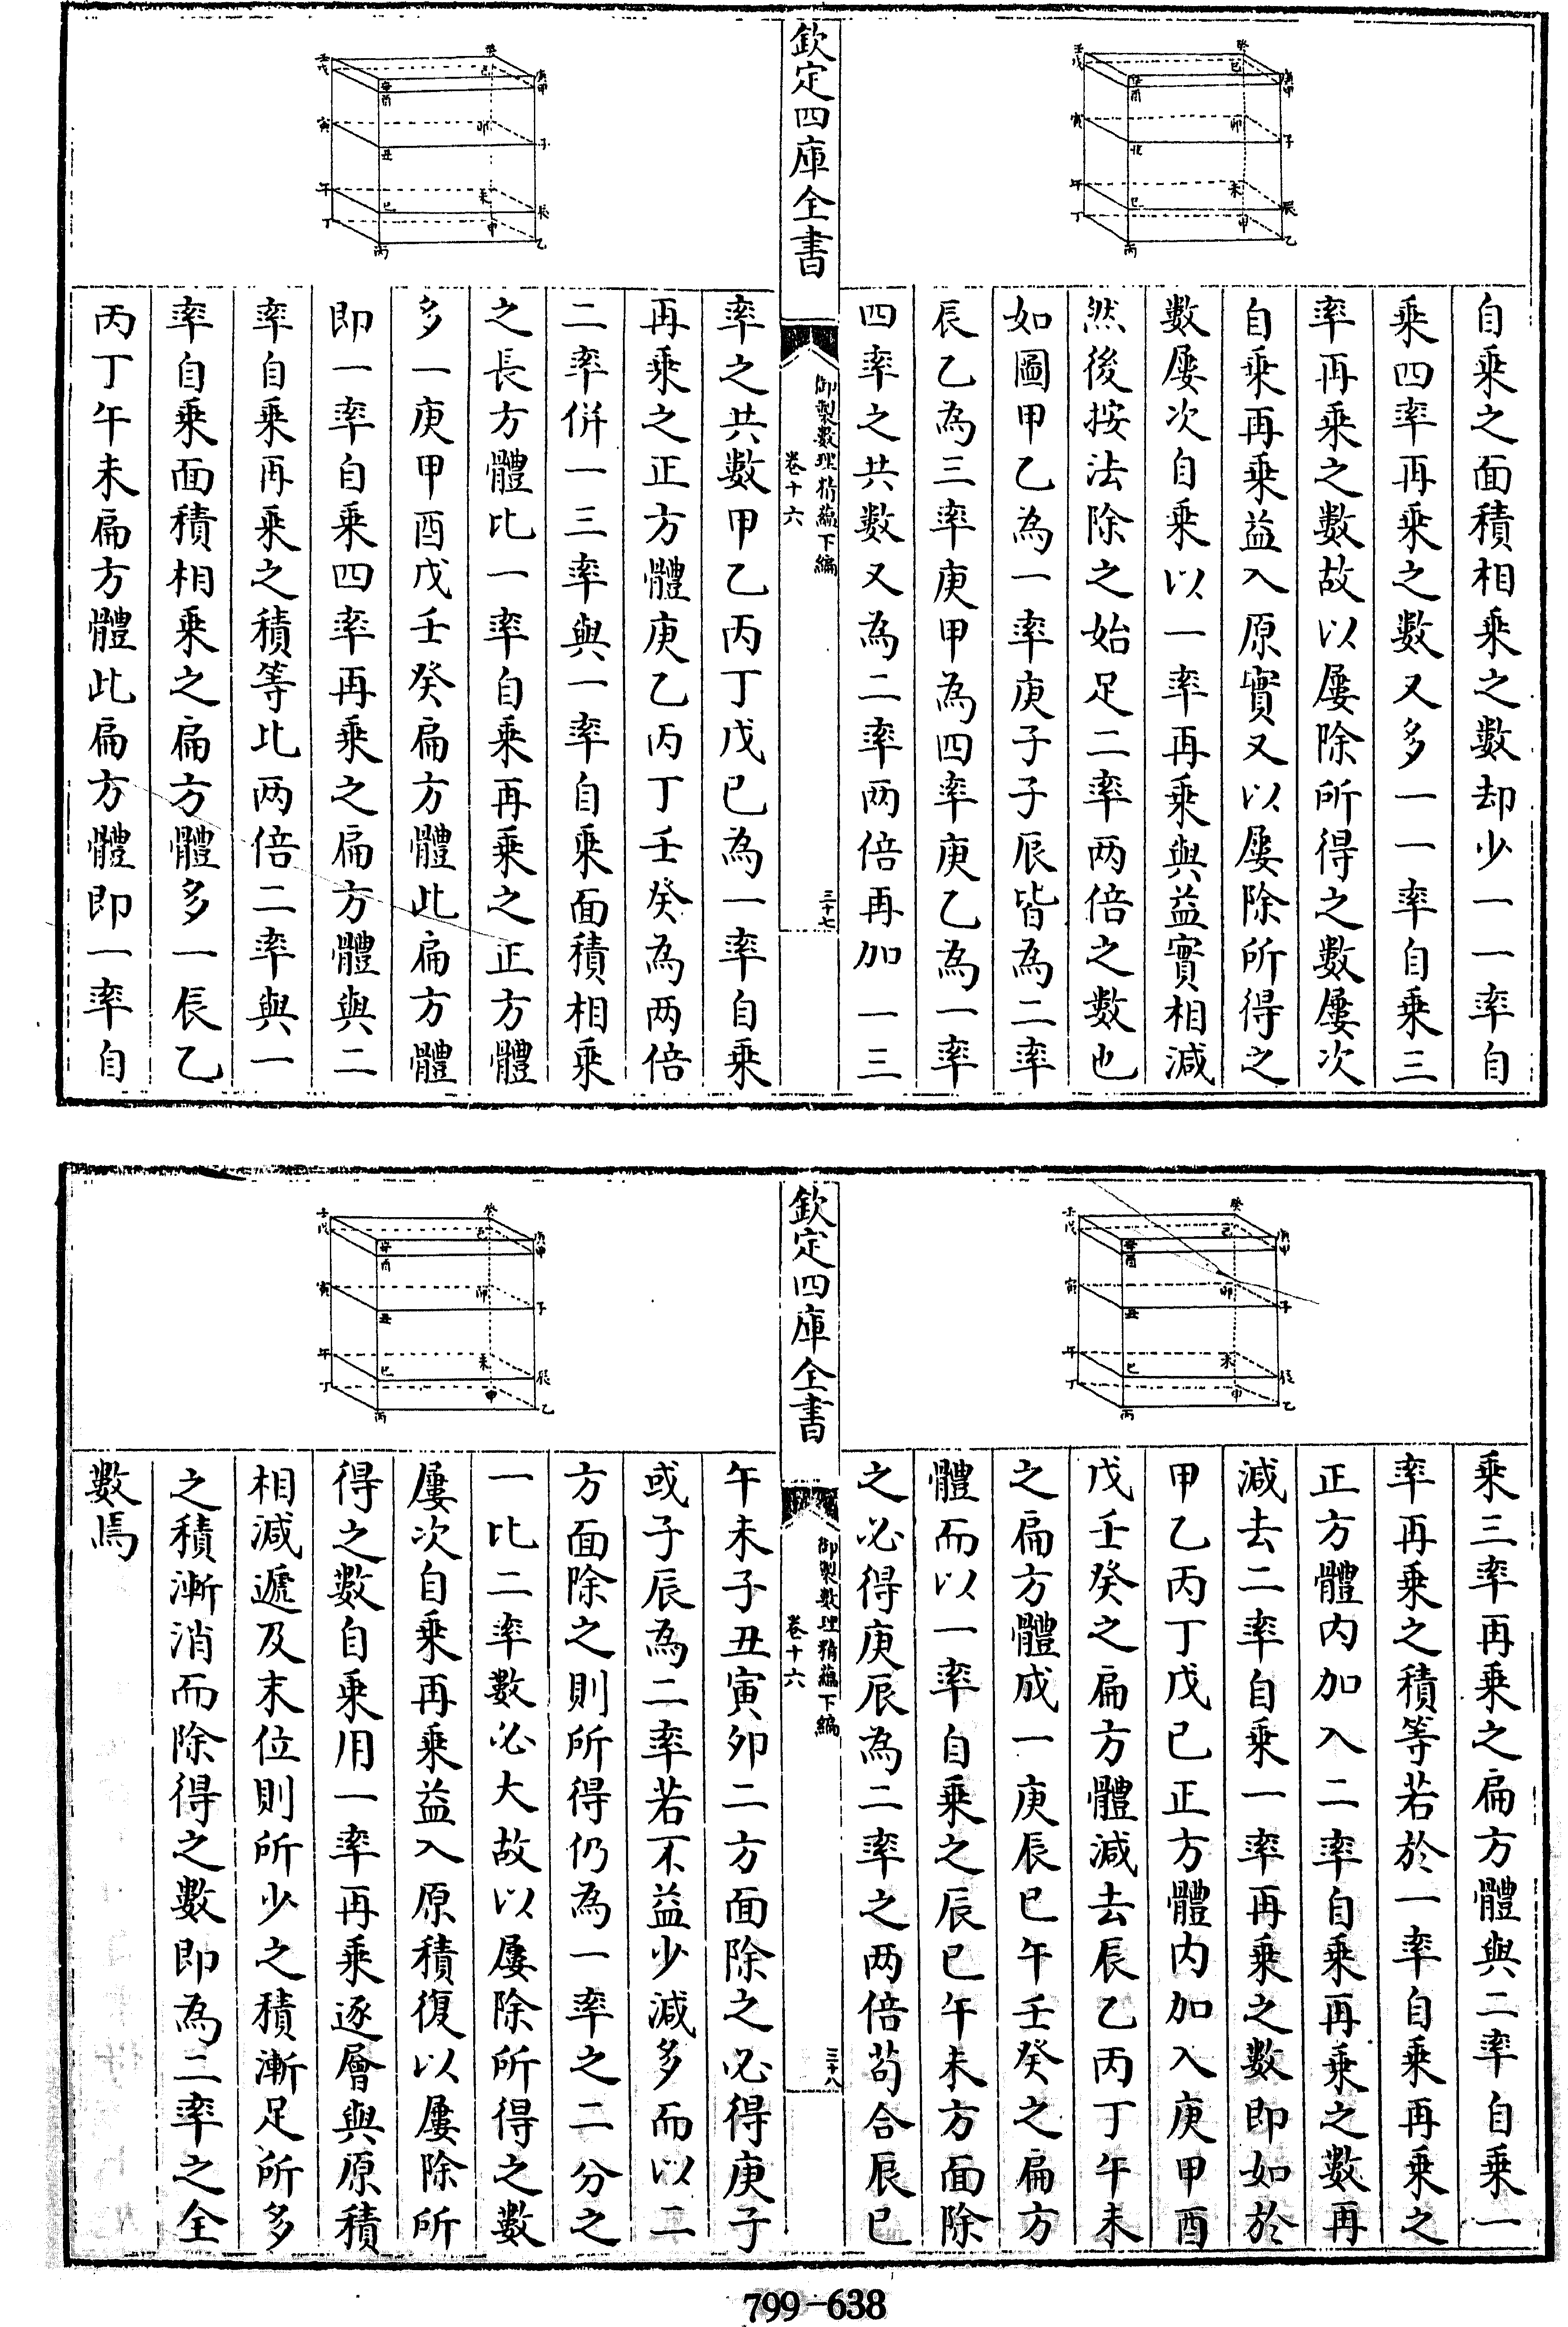 自乘之面積相乘之數却少一一率自
乘四率再乘之數又多一一率自乘三
率再乘之數故以屢除所得之數屢次
自乘再乘益入原實又以屢除所得之
數屢次自乘以一率再乘與益實相減
然後按法除之始足二率兩倍之數也
如圖甲乙為一率庚子子辰皆為二率
辰乙為三率庚甲為四率庚乙為一率
四率之共數又為二率兩倍再加一三
欽定四庫全書
御製數理精蘊下編
卷十六
三十七
率之共數甲乙丙丁戊已為一率自乘
再乘之正方體庚乙丙丁壬癸為兩倍
二率併一三率與一率自乘面積相乘
之長方體比一率自乘再乘之正方體
多一庚甲酉戊壬癸扁方體此扁方體
即一率自乘四率再乘之扁方體與二
率自乘再乘之積等比兩倍二率與一
率自乘面積相乘之扁方體多一辰乙
丙丁午未扁方體此扁方體即一率自
乘三率再乘之扁方體與二率自乘一
率再乘之積等若於一率自乘再乘之
正方體内加入二率自乘再乘之數再
減去二率自乘一率再乘之數即如於
甲乙丙丁戊已正方體内加入庚甲酉
戊壬癸之扁方體減去辰乙丙丁午未
之扁方體成一庚辰巳午壬癸之扁方
體而以一率自乘之辰巳午未方面除
之必得庚辰為二率之兩倍苟合辰巳
欽定四庫全書
御製數理精蘊下編
卷十六
三十八
午未子丑寅卯二方面除之必得庚子
或子辰為二率若不益少減多而以二
方面除之則所得仍為一率之二分之
一比二率數必大故以屢除所得之數
屢次自乘再乘益入原積復以屢除所
得之數自乘用一率再乘逐層與原積
相減遞及末位則所少之積漸足所多
之積漸消而除得之數即為二率之全
數焉
799-638